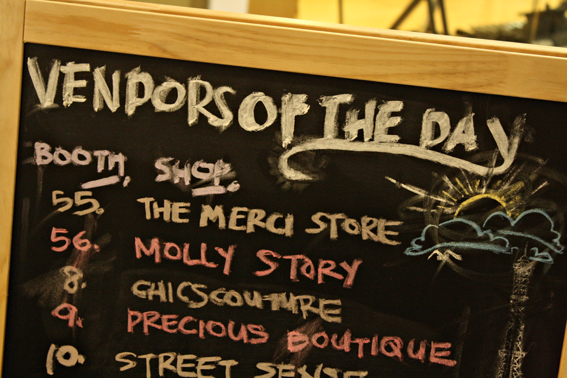 VENDORS OF THE DAY
BOOTH. SHOP.
55. THE MERCI STORE
56. MOLLY STORY
8. CHICSCOUTURE
9. PRECIOUS BOUTIQUE
10. STREET SENSE